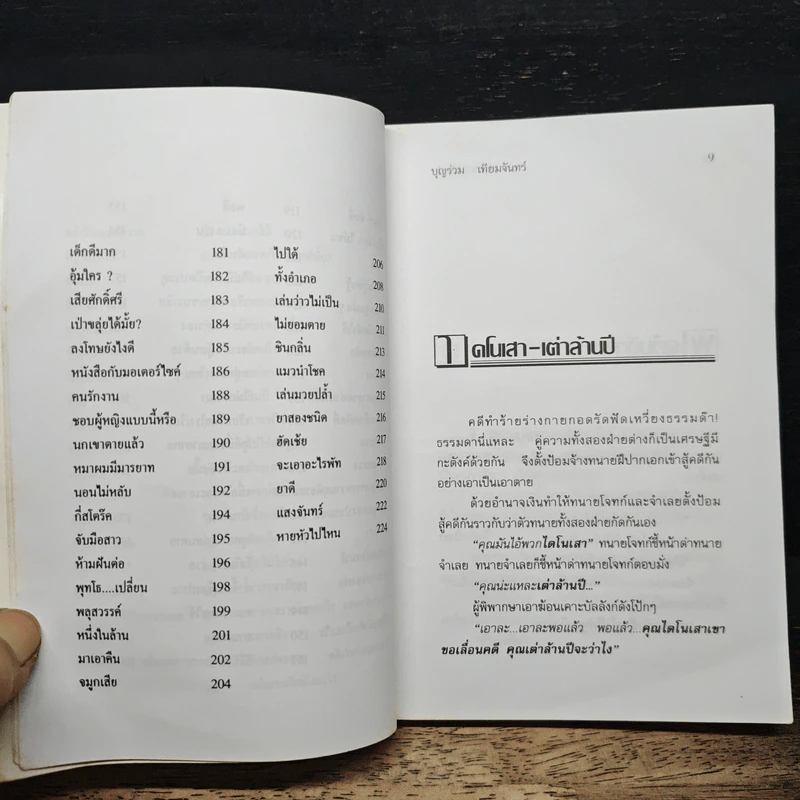 เด็กดีมาก 181
อุ้มใคร ? 182
เสียศักดิ์ศรี 183
เป่าขลุ่ยได้มั้ย? 184
ลงโทษยังไงดี 185
หนังสือกับมอเตอร์ไซค์ 186
คนรักงาน 188
ชอบผู้หญิงแบบนี้หรือ 189
นกเขาตายแล้ว 190
หมาผมมีมารยาท 191
นอนไม่หลับ 192
กี่สโตร๊ค 194
จับมือสาว 195
ห้ามฝันต่อ 196
พุทโธ....เปลี่ยน 198
พลุสวรรค์ 199
หนึ่งในล้าน 201
มาเอาคืน 202
จมูกเสีย 204
ไปได้ 206
ทั้งอำเภอ 208
เล่นว่าวไม่เป็น 210
ไม่ยอมตาย 211
ชินกลิ่น 213
แมวนำโชค 214
เล่นมวยปล้ำ 215
ยาสองชนิด 216
ฮัดเช้ย 217
จะเอาอะไรพัท 218
ยาดี 220
แสงจันทร์ 222
หายหัวไปไหน 224
บุญร่วม เทียมจันทร์ 9
ไดโนเสา-เต่าล้านปี
คดีทำร้ายร่างกายกอดรัดฟัดเหวี่ยงธรรมด๊า!
ธรรมดานี่แหละ คู่ความทั้งสองฝ่ายต่างก็เป็นเศรษฐีมี
กะตังค์ด้วยกัน จึงตั้งป้อมจ้างทนายฝีปากเอกเข้าสู้คดีกัน
อย่างเอาเป็นเอาตาย
ด้วยอำนาจเงินทำให้ทนายโจทก์และจำเลยตั้งป้อม
สู้คดีกันราวกับว่าตัวทนายทั้งสองฝ่ายกัดกันเอง
“คุณมันไอ้พวกไดโนเสา” ทนายโจทก์ชี้หน้าด่าทนาย
จำเลย ทนายจำเลยก็ชี้หน้าด่าทนายโจทก์ตอบมั่ง
“คุณน่ะแหละเต่าล้านปี...”
ผู้พิพากษาเอาฆ้อนเคาะบัลลังก์ดังโป๊กๆ
“เอาละ...เอาละพอแล้ว พอแล้ว...คุณไดโนเสาเขา
ขอเลื่อนคดี คุณเต่าล้านปีจะว่าไง”